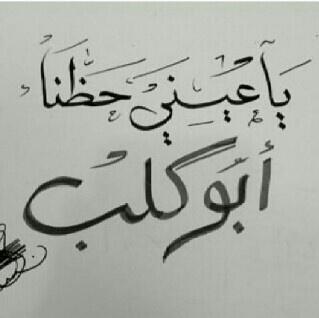 يَا عَيْنِي حَظَّنَا
أبو كلب